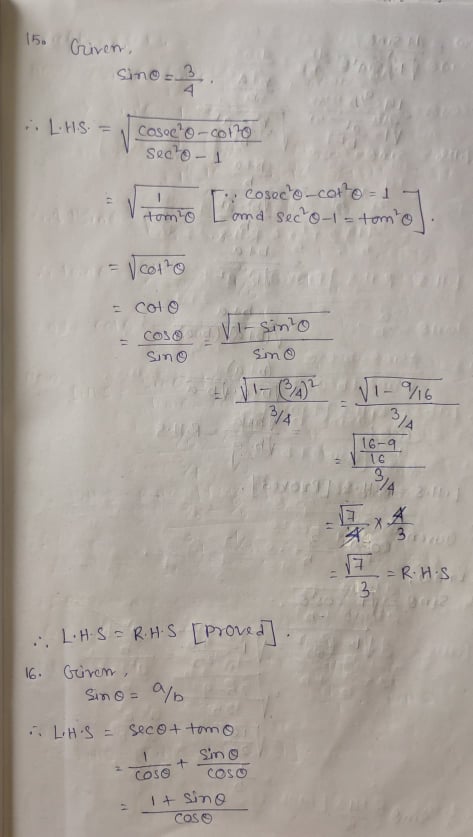 15. Given,
sinθ = 3/4.
∴ L.H.S. = √((cosec²θ - cot²θ)/(sec²θ - 1))
= √(1/tan²θ) [∵ cosec²θ - cot²θ = 1 and sec²θ - 1 = tan²θ].
= √cot²θ
= cotθ
= cosθ/sinθ = √(1 - sin²θ)/sinθ
= √(1 - (3/4)²)/(3/4) = √(1 - 9/16)/(3/4)
= √((16-9)/16)/(3/4)
= √7/4 × 4/3
= √7/3 = R.H.S
∴ L.H.S = R.H.S [Proved].
16. Given,
sinθ = a/b
∴ L.H.S = secθ + tanθ
= 1/cosθ + sinθ/cosθ
= (1 + sinθ)/cosθ